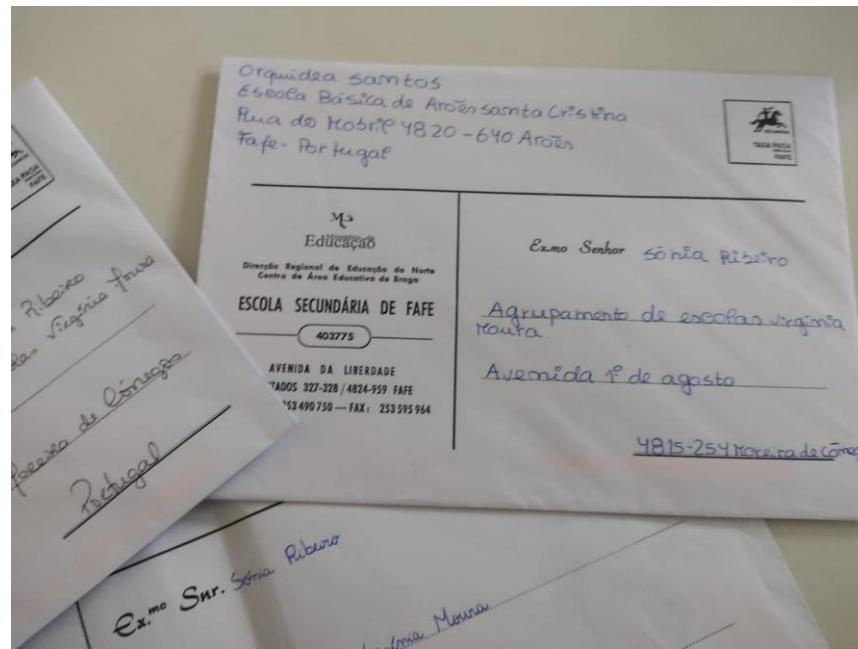 Orquidea Santos
Escola Básica de Arões Santa Cristina
Rua do Mobril 4820-640 Arões
Fafe - Portugal
TAXA PAGA
FAFE
Educação
Direcção Regional de Educação do Norte
Centro de Área Educativa de Braga
ESCOLA SECUNDÁRIA DE FAFE
403775
AVENIDA DA LIBERDADE
TADOS 327-328 / 4824-959 FAFE
253 490 750 — FAX: 253 595 964
Ex.mo Senhor Sónia Ribeiro
Agrupamento de escolas virgínia
Moura
Avenida 1º de agosto
4815-254 Moreira de Cóne
TAXA PAGA
FAFE
Ribeiro
Virgínia Moura
Moreira de Cónegos
Portugal
Ex.mo Snr. Sónia Ribeiro
Moura